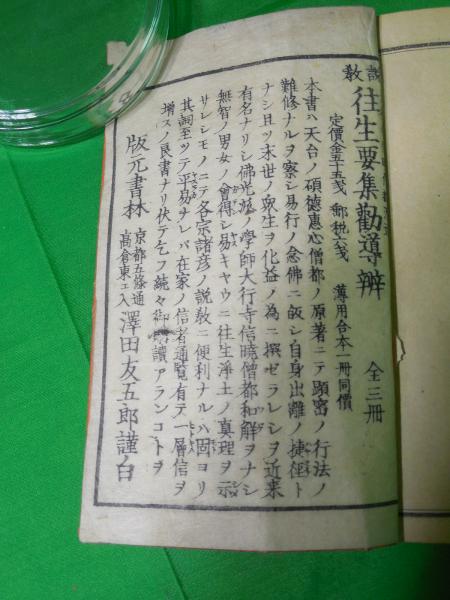 説教 往生要集勸導辨 全三冊
定價金五十五戔 郵税六戔 薄用合本一冊同價
本書ハ天台ノ碩徳惠心僧都ノ原著ニテ顕密ノ行法ノ
難修ナルヲ察シ易行ノ念佛ニ皈シ自身出離ノ捷徑ト
ナシ且ツ末世ノ衆生ヲ化益ノ為ニ撰セラレシヲ近来
有名ナリシ佛光派ノ學師大行寺信曉僧都和解ヲナシ
無智ノ男女ノ會得シ易キヤウニ往生淨土ノ真理ヲ示
サレシモノニテ各宗諸彦ノ説教ニ便利ナルハ固ヨリ
其詞至ツテ平易ナレバ在家ノ信者通覧有テ一層信ヲ
増スノ良書ナリ伏テ乞フ続々御購讀アランコトヲ
版元書林 京都五條通高倉東ェ入 澤田友五郎謹白